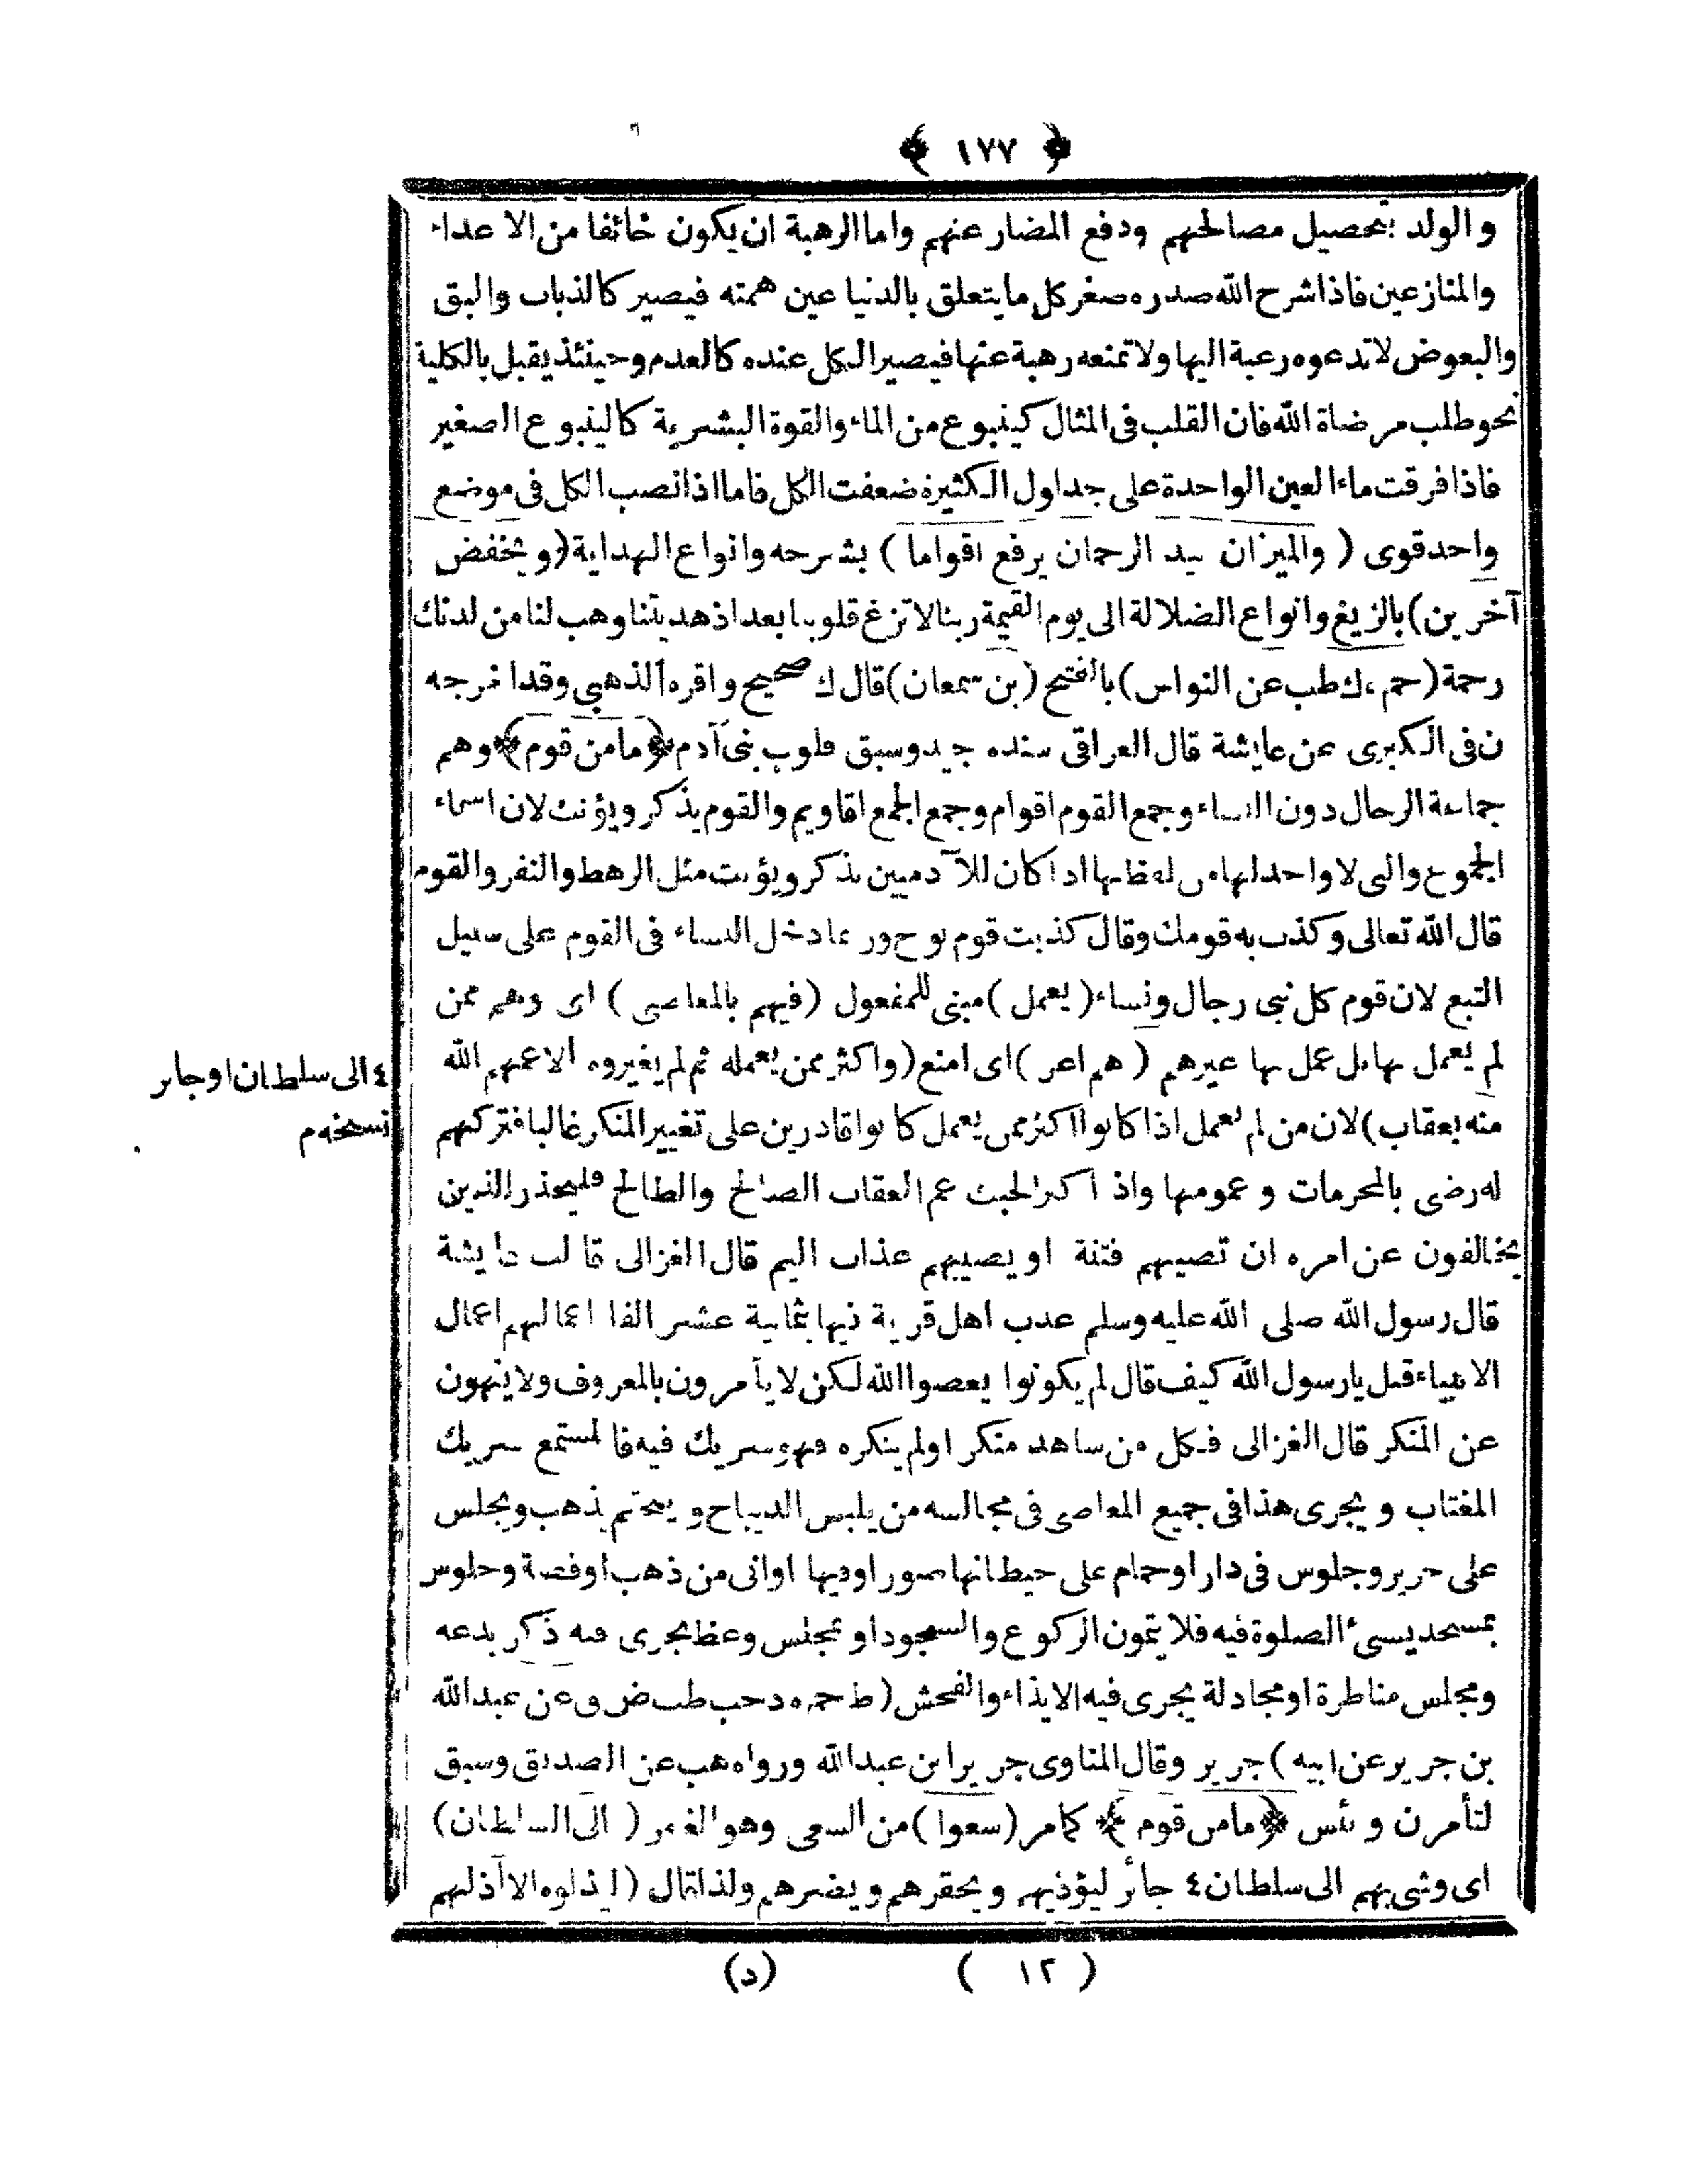 ﴿ ١٧٧ ﴾
والولد بتحصيل مصالحهم ودفع المضار عنهم واما الرهبة ان يكون خائفا من الاعداء
والمنازعين فاذا شرح الله صدره صغر كل ما يتعلق بالدنيا عين همته فيصير كالذباب والبق
والبعوض لا تدعوه رعبة اليها ولا تمنعه رهبة عنها فيصير الكل عنده كالعدم وحينئذ يقبل بالكلية
نحو طلب مرضاة الله فان القلب فى المثال كينبوع من الماء والقوة البشرية كالينبوع الصغير
فاذا فرقت ماء العين الواحدة على جداول الكثيرة ضعفت الكل فاما اذا انصب الكل فى موضع
واحد قوى ( والميزان بيد الرحمان يرفع اقواما ) بشرحه وانواع الهداية (ويخفض
آخرين) بالزيغ وانواع الضلالة الى يوم القيمة ربنا لا تزغ قلوبنا بعد اذ هديتنا وهب لنا من لدنك
رحمة (حم، ك طب عن النواس) بالفتح (بن سمعان) قال ك صحيح واقره الذهبى وقد اخرجه
ن فى الكبرى عن عايشة قال العراقى سنده جيد وسبق قلوب بنى آدم ﴿ما من قوم﴾ وهم
جماعة الرجال دون النساء وجمع القوم اقوام وجمع الجمع اقاويم والقوم يذكر ويؤنث لان اسماء
الجموع والتى لا واحد لها من لفظها اذا كان للآدميين يذكر ويؤنث مثل الرهط والنفر والقوم
قال الله تعالى وكذب به قومك وقال كذبت قوم نوح وربما دخل النساء فى القوم على سبيل
التبع لان قوم كل نبى رجال ونساء (يعمل) مبنى للمفعول (فيهم بالمعاصى) اى وهم ممن
لم يعمل بها بل عمل بها غيرهم ( هم اعز ) اى امنع (واكثر ممن يعمله ثم لم يغيروه الا عمهم الله
منه بعقاب) لان من لم يعمل اذا كانوا اكثر ممن يعمل كانوا قادرين على تغيير المنكر غالبا فتركهم
له رضى بالمحرمات وعمومها واذا كثر الخبث عم العقاب الصالح والطالح فليحذر الذين
يخالفون عن امره ان تصيبهم فتنة او يصيبهم عذاب اليم قال الغزالى قالت عايشة
قال رسول الله صلى الله عليه وسلم عذب اهل قرية فيها بثمانية عشر الفا اعمالهم اعمال
الانبياء قيل يا رسول الله كيف قال لم يكونوا يعصوا الله لكن لا يأمرون بالمعروف ولا ينهون
عن المنكر قال الغزالى فكل من ساهد منكرا ولم ينكره فهو سريك فيه فالمستمع سريك
المغتاب ويجرى هذا فى جميع المعاصى فى مجالسه من يلبس الديباج ويختم بذهب ويجلس
على حرير وجلوس فى دار او حمام على حيطانها صور او فيها اوانى من ذهب او فضة وجلوس
بمسجد يسئ الصلوة فيه فلا يتمون الركوع والسجود او بمجلس وعظ يجرى فيه ذكر بدعه
ومجلس مناظرة او مجادلة يجرى فيه الايذاء والفحش (ط حم ه د حب طب ض ق عن عبد الله
بن جرير عن ابيه ) جرير وقال المناوى جرير ابن عبد الله ورواه هب عن الصديق وسبق
لتأمرن وبئس ﴿ ما من قوم ﴾ كما مر (سعوا) من السعى وهو الغمز ( الى السلطان)
اى وشى بهم الى سلطان ٤ جائر ليؤذيهم ويحقرهم ويضرهم ولذا قال (ليذلوه الا اذلهم
٤ الى سلطان او جابر
نسخه م
( ١٢ ) (د)